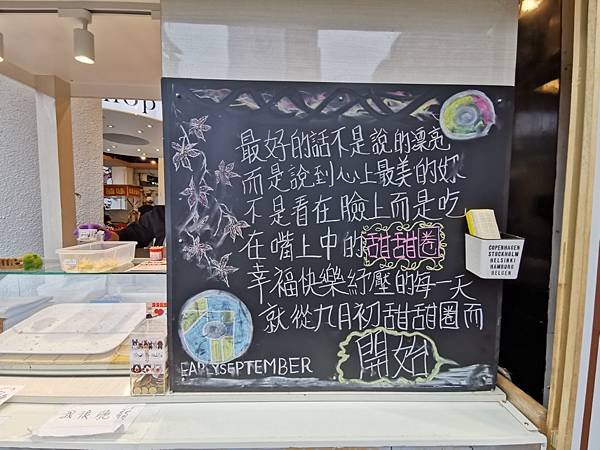 最好的話不是說的漂亮
而是說到心上最美的妳
不是看在臉上而是吃
在嘴上中的甜甜圈
幸福快樂紓壓的每一天
就從九月初甜甜圈而
開始
EARLYSEPTEMBER
COPENHAGEN
STOCKHOLM
HELSINKI
HAMBURG
BELGEN